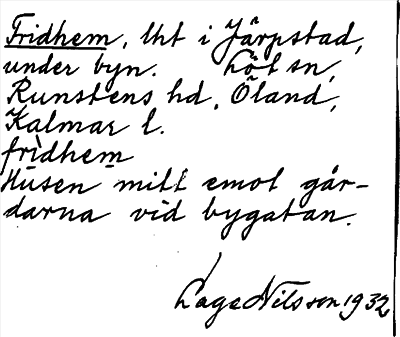 Fridhem, lht i Järpstad,
under byn. Löt sn,
Runstens hd, Öland,
Kalmar l.
frìdhem
Husen mitt emot går-
darna vid bygatan.
Lage Nilsson 1932